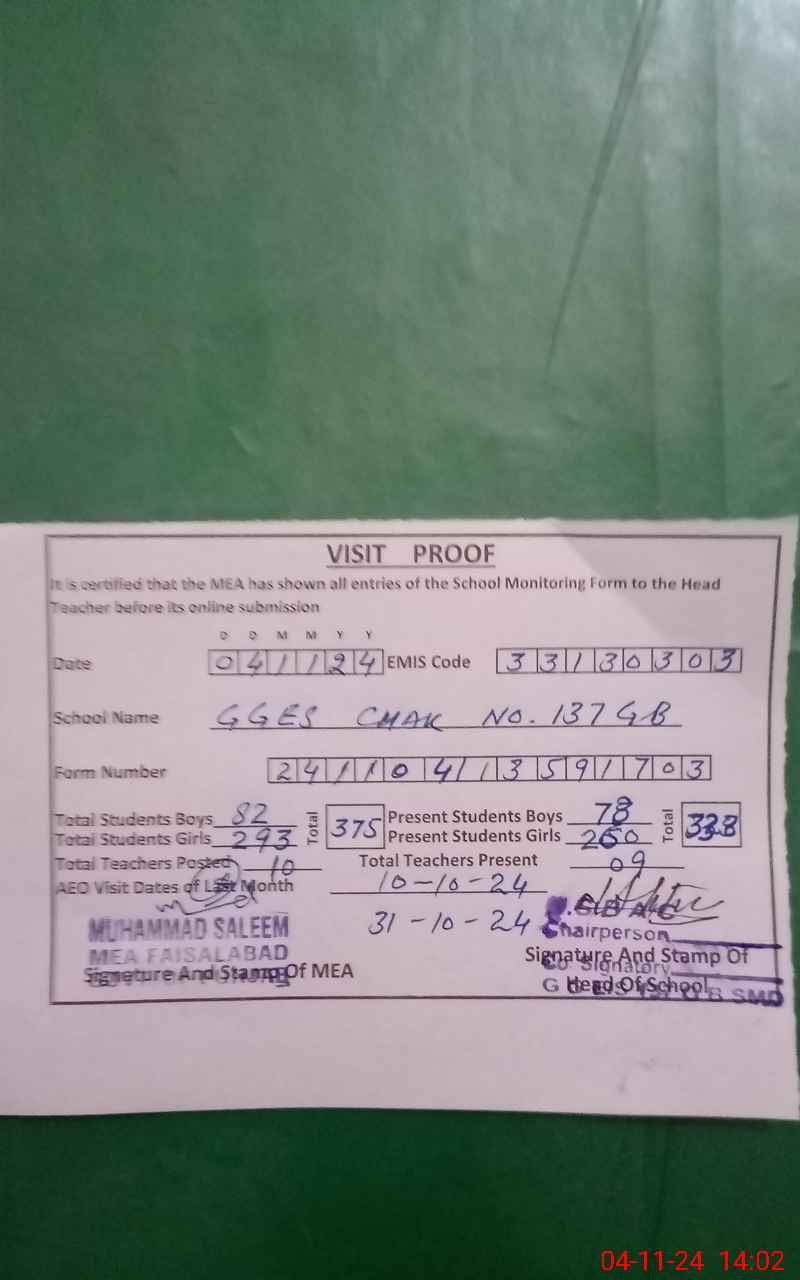 VISIT PROOF
It is certified that the MEA has shown all entries of the School Monitoring Form to the Head
Teacher before its online submission
D D M M Y Y
Date 041124 EMIS Code 33130303
School Name GGES CHAK NO. 137 GB
Form Number 24110413591703
Total Students Boys 82 Total 375 Present Students Boys 78 Total 338
Total Students Girls 293 Present Students Girls 260
Total Teachers Posted 10 Total Teachers Present 09
AEO Visit Dates of Last Month 10-10-24
31-10-24
MUHAMMAD SALEEM
MEA FAISALABAD
Signature And Stamp Of MEA
Chairperson
Signature And Stamp Of
Co Signatory
Head Of School
04-11-24 14:02